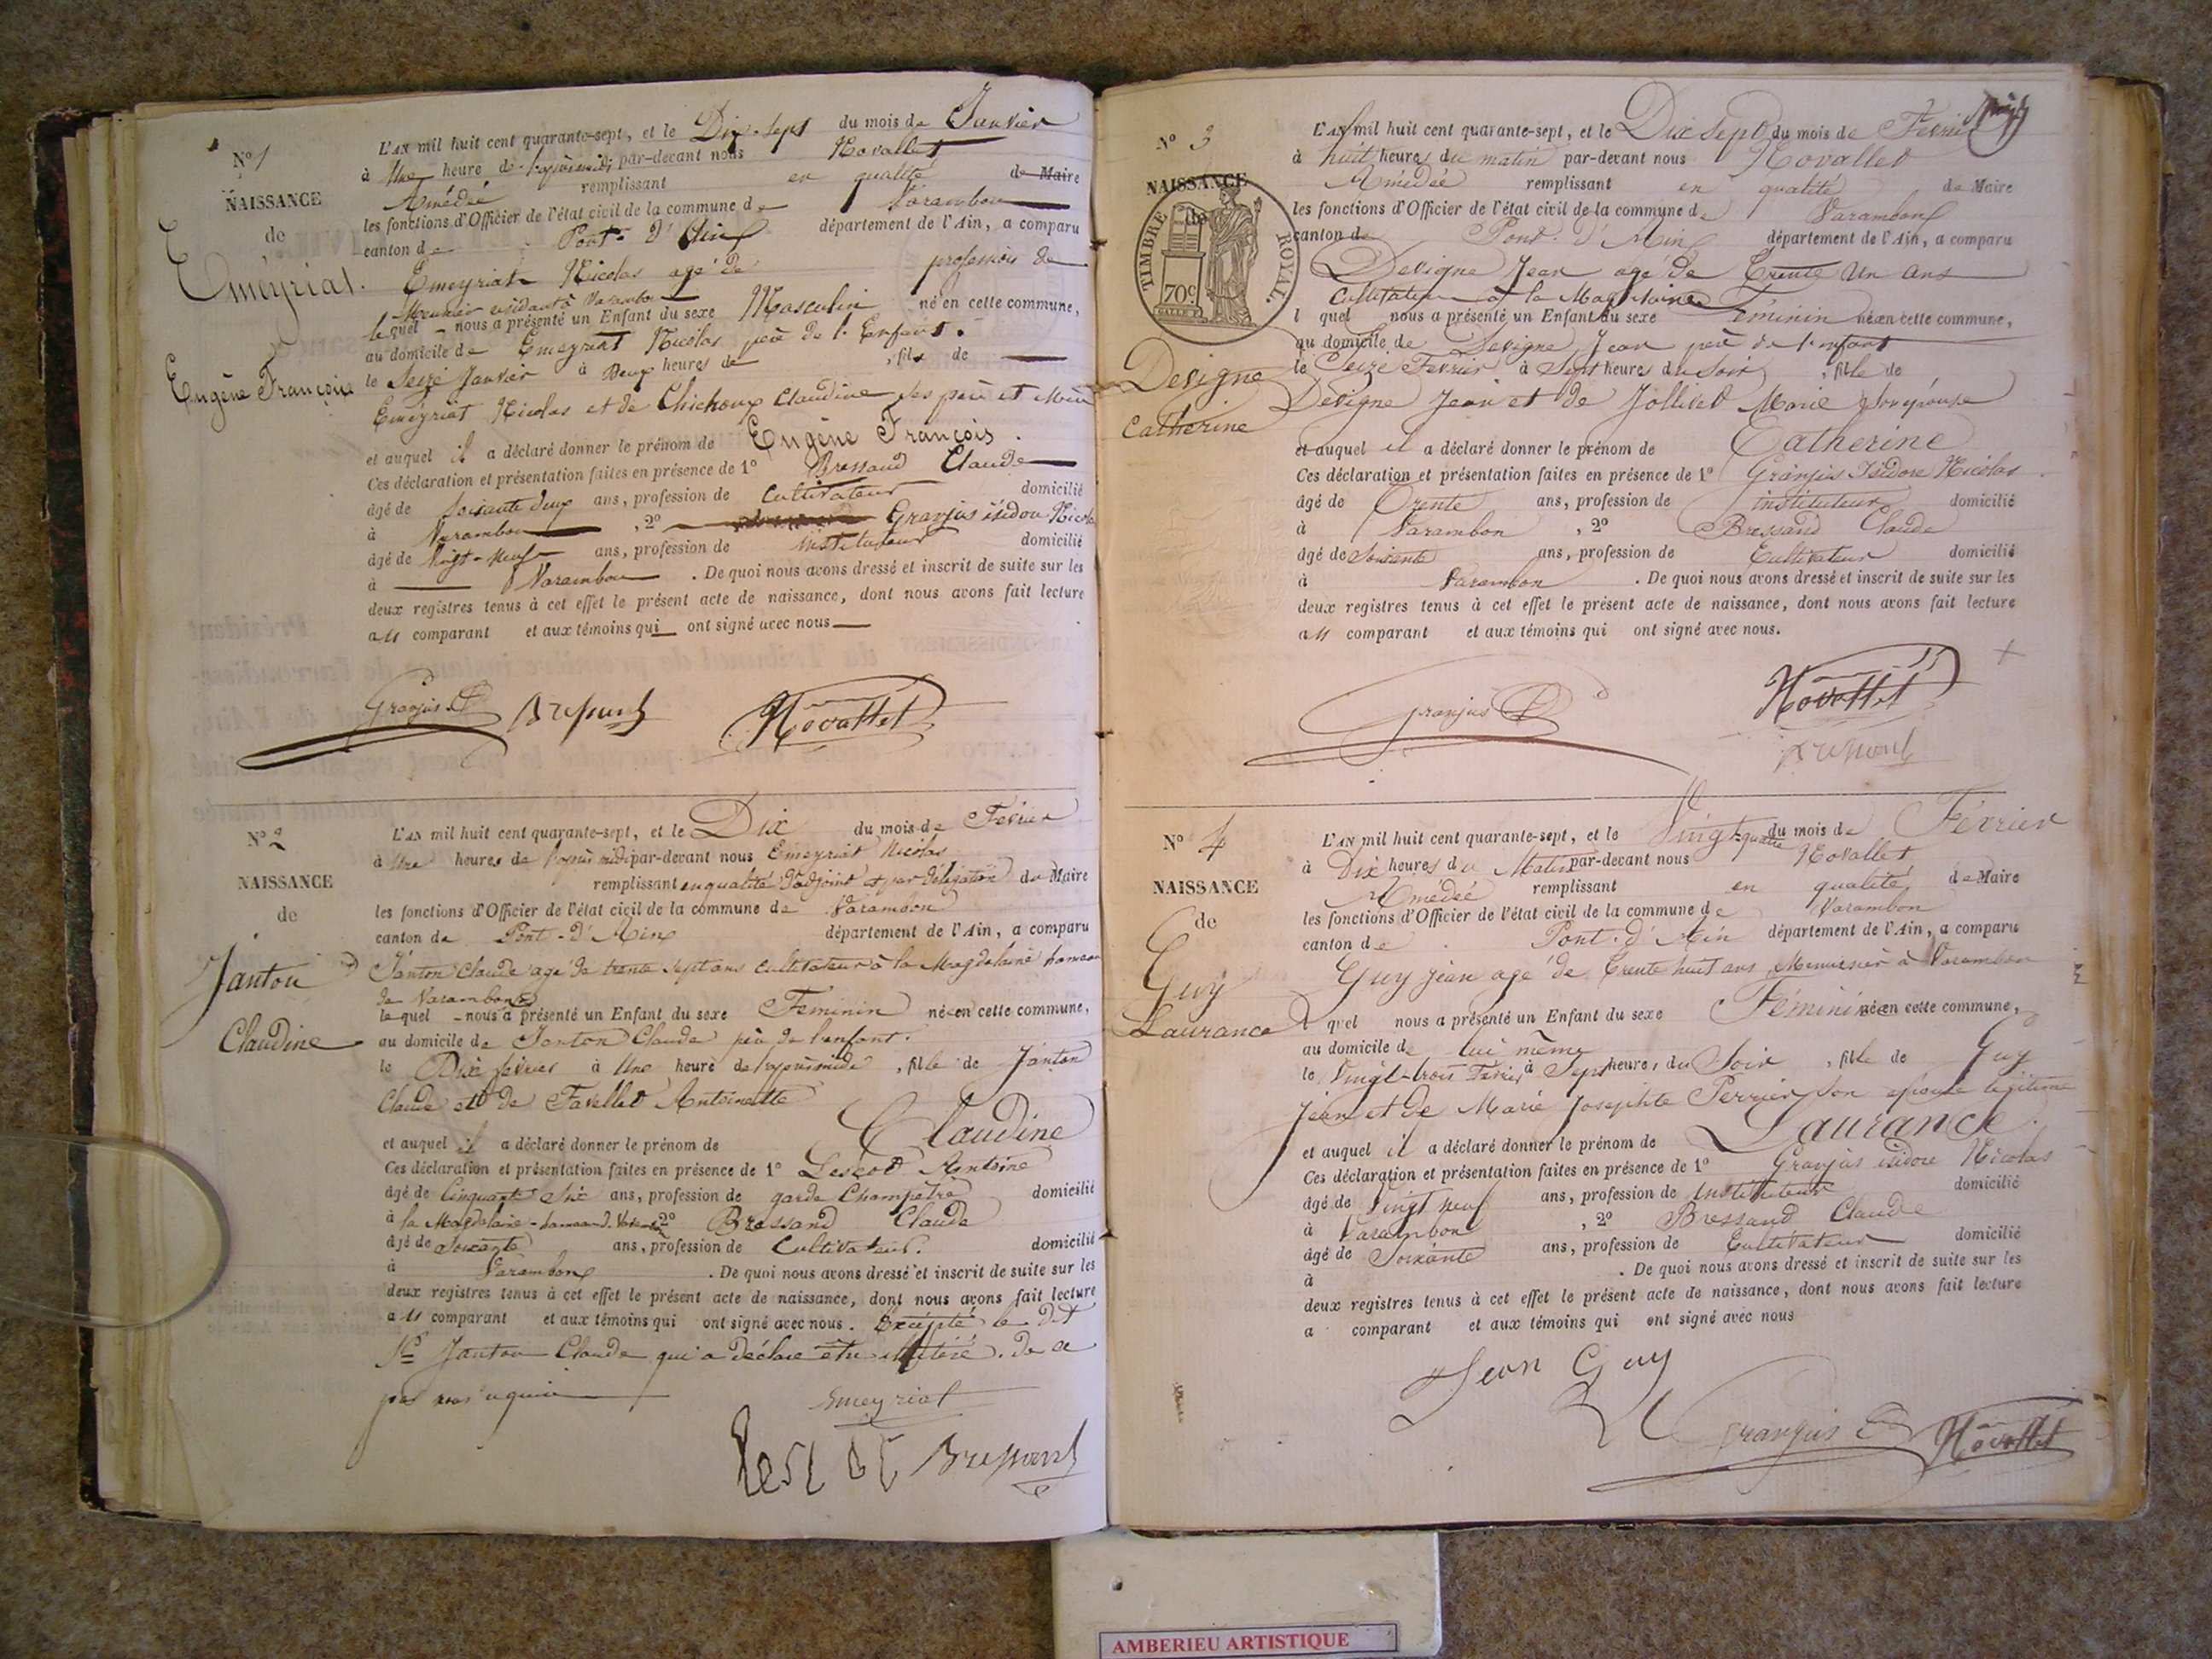 Nº 1
NAISSANCE
de
Emeyriat.
Eugène François
L'AN mil huit cent quarante-sept, et le Dix-sept du mois de Janvier
à Une heure de par-devant nous Hovallet
Amédée remplissant en qualité de Maire
les fonctions d'Officier de l'état civil de la commune de Varambon
canton de Pont-d'Ain département de l'Ain, a comparu
Emeyriat Nicolas agé de profession de
Meunier résidant à Varambon
lequel nous a présenté un Enfant du sexe Masculin né en cette commune,
au domicile de Emeyriat Nicolas père de l'Enfant.
le Seize Janvier à Deux heures de , fils de
Emeyriat Nicolas et de Chichoux Claudine ses père et Mère
et auquel il a déclaré donner le prénom de Eugène François.
Ces déclaration et présentation faites en présence de 1º Bressand Claude
âgé de Soixante deux ans, profession de Cultivateur domicilié
à Varambon , 2º Granjus isidore Nicolas
âgé de Vingt-neuf ans, profession de instituteur domicilié
à Varambon . De quoi nous avons dressé et inscrit de suite sur les
deux registres tenus à cet effet le présent acte de naissance, dont nous avons fait lecture
au comparant et aux témoins qui ont signé avec nous
Granjus Bressand Hovallet
Nº 2
NAISSANCE
de
Janton
Claudine
L'AN mil huit cent quarante-sept, et le Dix du mois de Février
à Une heures de l'après midi par-devant nous Emeyriat Nicolas
remplissant en qualité d'adjoint et par délégation du Maire
les fonctions d'Officier de l'état civil de la commune de Varambon
canton de Pont-d'Ain département de l'Ain, a comparu
Janton Claude agé de trente sept ans Cultivateur à la Magdelaine hameau
de Varambon
lequel nous a présenté un Enfant du sexe Féminin né en cette commune,
au domicile de Janton Claude père de l'enfant.
le Dix février à Une heure de l'après midi , fille de Janton
Claude et de Favellet Antoinette
et auquel il a déclaré donner le prénom de Claudine
Ces déclaration et présentation faites en présence de 1º Lescot Antoine
âgé de Cinquante Six ans, profession de garde Champêtre domicilié
à la Magdelaine hameau d. Varambon 2º Bressand Claude
âgé de Soixante ans, profession de Cultivateur. domicilié
à Varambon . De quoi nous avons dressé et inscrit de suite sur les
deux registres tenus à cet effet le présent acte de naissance, dont nous avons fait lecture
au comparant et aux témoins qui ont signé avec nous. Excepté le dit
Janton Claude qui a déclaré être illitéré. de ce
Emeyriat
Lescot Bressand
Nº 3
NAISSANCE
de
TIMBRE ROYAL.
70c
Devigne
Catherine
L'AN mil huit cent quarante-sept, et le Dix Sept du mois de Février
à huit heures du matin par-devant nous Hovallet
Amédée remplissant en qualité de Maire
les fonctions d'Officier de l'état civil de la commune de Varambon
canton de Pont-d'Ain département de l'Ain, a comparu
Devigne Jean agé de Trente Un ans
Cultivateur à la Magdelaine
l quel nous a présenté un Enfant du sexe Féminin né en cette commune,
au domicile de Devigne Jean père de l'enfant
le Seize Février à Sept heures du Soir , fille de
Devigne Jean et de Jollivet Marie son épouse
et auquel il a déclaré donner le prénom de Catherine
Ces déclaration et présentation faites en présence de 1º Granjus Isidore Nicolas
âgé de Trente ans, profession de instituteur domicilié
à Varambon , 2º Bressand Claude
âgé de Soixante ans, profession de Cultivateur domicilié
à Varambon . De quoi nous avons dressé et inscrit de suite sur les
deux registres tenus à cet effet le présent acte de naissance, dont nous avons fait lecture
au comparant et aux témoins qui ont signé avec nous.
Granjus Hovallet
Bressand
Nº 4
NAISSANCE
de
Guy
Laurance
L'AN mil huit cent quarante-sept, et le Vingt-quatre du mois de Février
à Dix heures du Matin par-devant nous Hovallet
Amédée remplissant en qualité de Maire
les fonctions d'Officier de l'état civil de la commune de Varambon
canton de Pont-d'Ain département de l'Ain, a comparu
Guy jean agé de Trente huit ans Menuisier à Varambon
l quel nous a présenté un Enfant du sexe Féminin né en cette commune,
au domicile de lui même
le Vingt-trois Février à Sept heures du Soir , fille de Guy
Jean et de Marie Josephte Perrier son épouse légitime
et auquel il a déclaré donner le prénom de Laurance.
Ces déclaration et présentation faites en présence de 1º Granjus isidore Nicolas
âgé de Vingt neuf ans, profession de instituteur domicilié
à Varambon , 2º Bressand Claude
âgé de Soixante ans, profession de Cultivateur domicilié
à . De quoi nous avons dressé et inscrit de suite sur les
deux registres tenus à cet effet le présent acte de naissance, dont nous avons fait lecture
a comparant et aux témoins qui ont signé avec nous
Jean Guy
Granjus Hovallet
AMBERIEU ARTISTIQUE